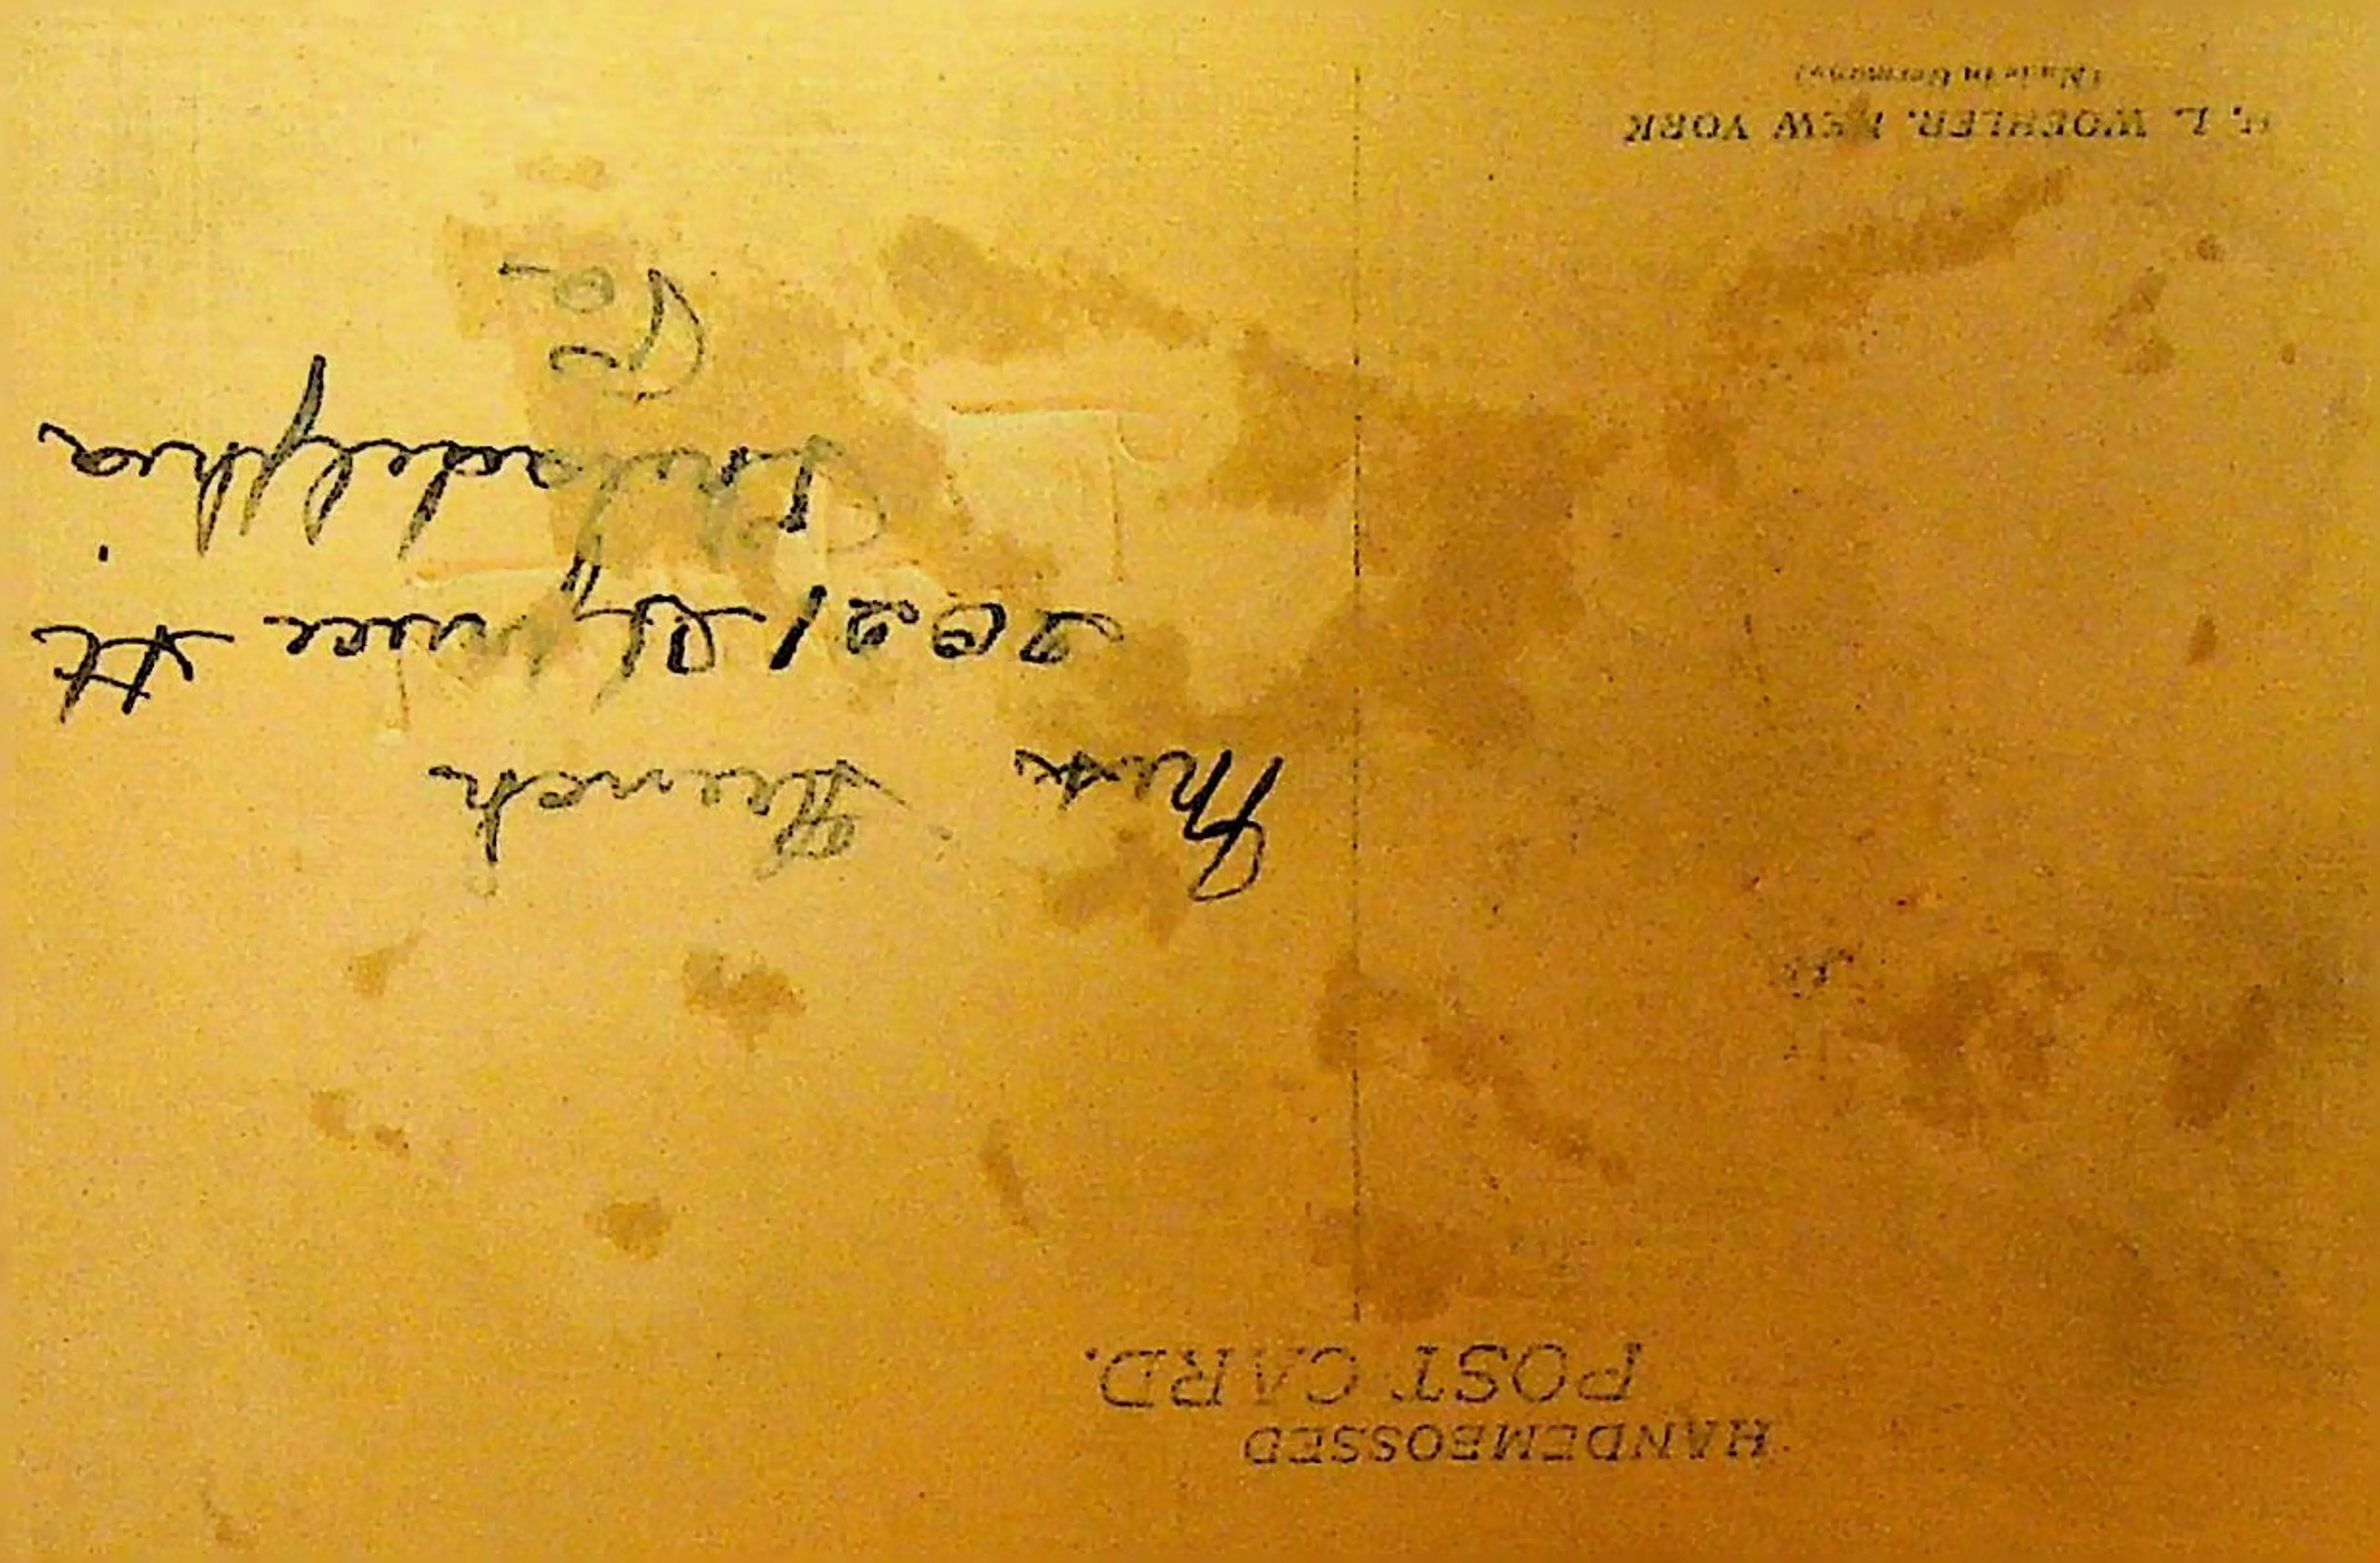 HANDEMBOSSED
POST CARD.
Mrs
2021 Spruce St.
Philadelphia
Pa
H. L. WOEHLER, NEW YORK
(Made in Germany)